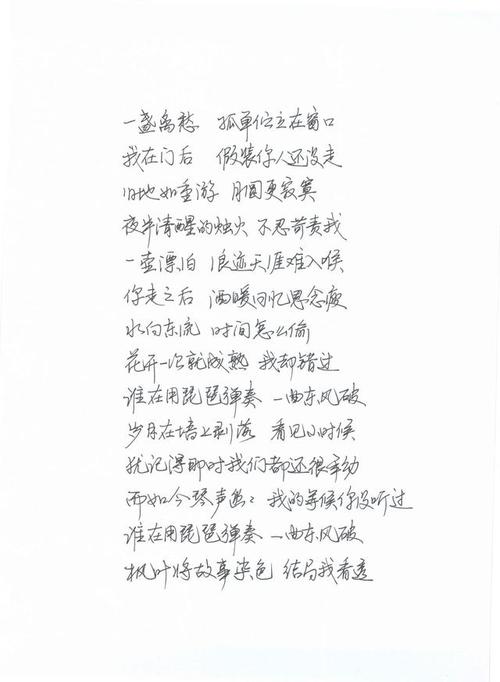 一盏离愁 孤单伫立在窗口
我在门后 假装你人还没走
旧地如重游 月圆更寂寞
夜半清醒的烛火 不忍苛责我
一壶漂泊 浪迹天涯难入喉
你走之后 酒暖回忆思念瘦
水向东流 时间怎么偷
花开一次就成熟 我却错过
谁在用琵琶弹奏 一曲东风破
岁月在墙上剥落 看见小时候
犹记得那时我们都还很年幼
而如今琴声幽幽 我的等候你没听过
谁在用琵琶弹奏 一曲东风破
枫叶将故事染色 结局我看透